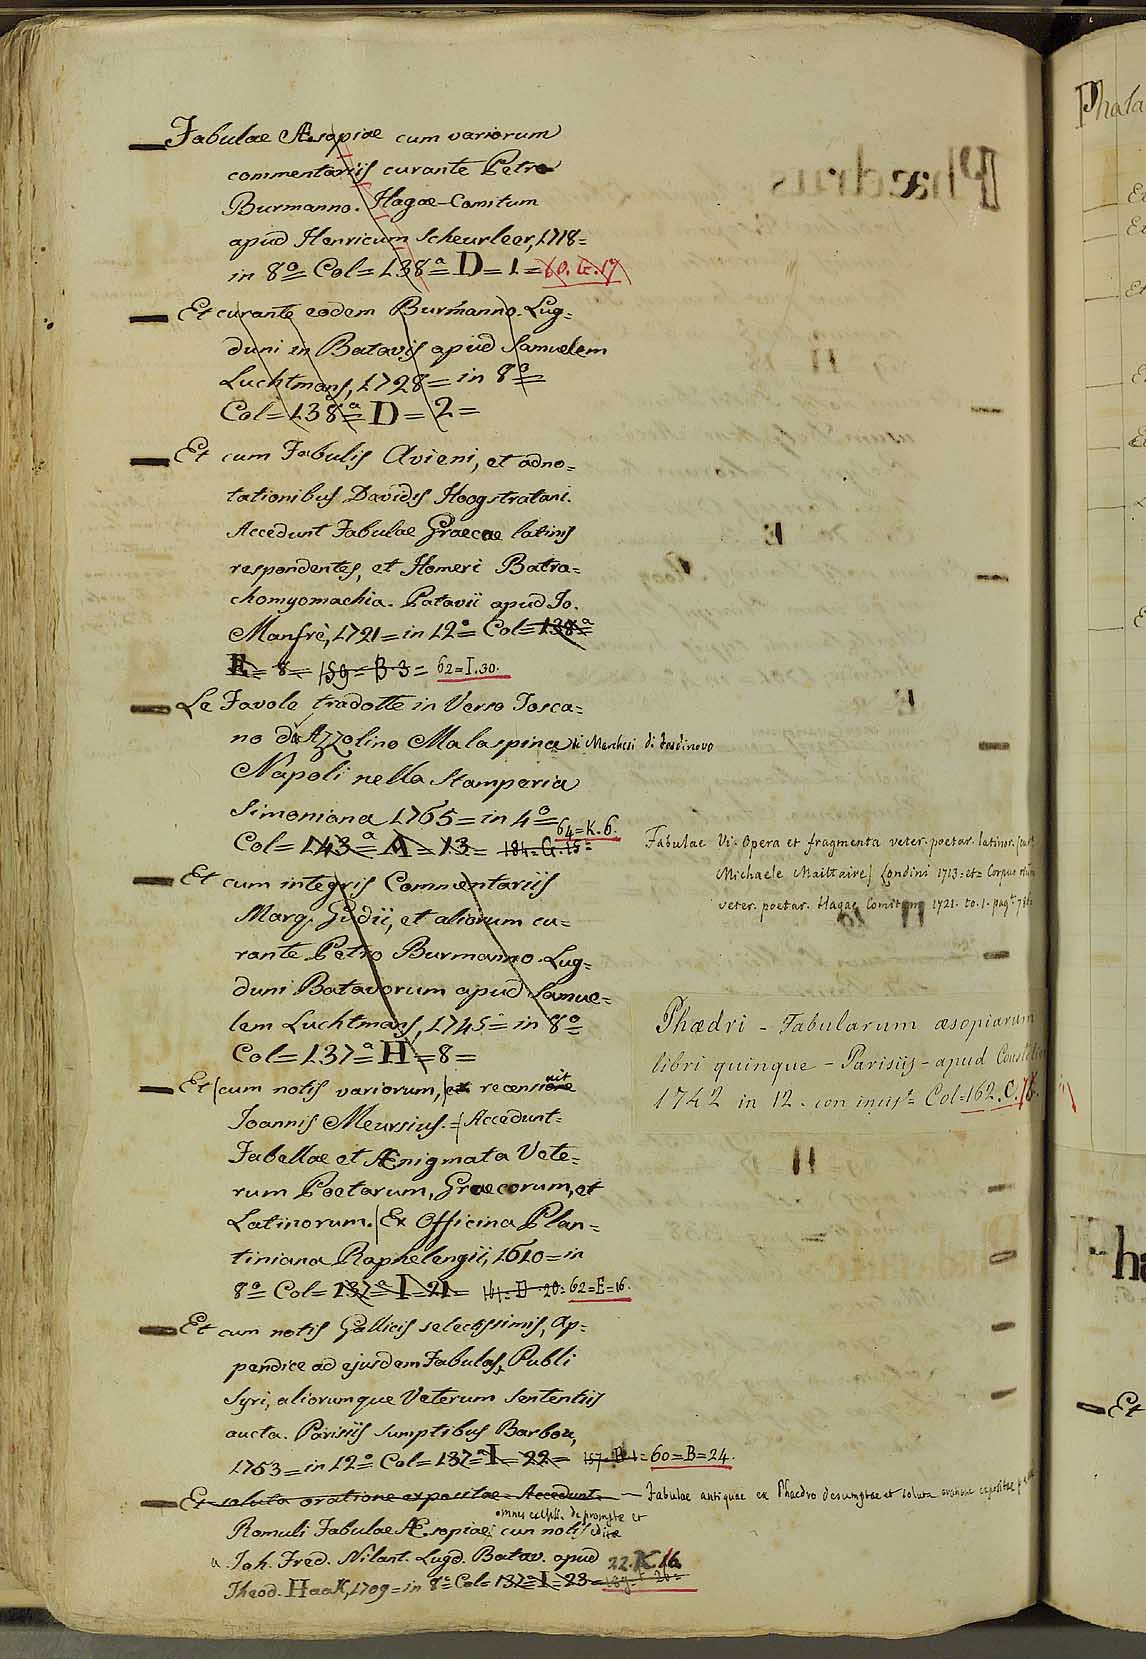 Fabulae Æsopiae cum variorum
commentariis curante Petro
Burmanno. Hagae-Comitum
apud Henricum Scheurleer, 1718=
in 8º= Col= 138ª= D= 1=
Et curante eodem Burmanno. Lug=
duni in Batavis apud Samuelem
Luchtmans, 1728= in 8º=
Col= 138ª= D= 2=
Et cum Fabulis Avieni, et adno=
tationibus Davidis Hoogstratani.
Accedunt Fabulae Graecae latinis
respondentes, et Homeri Batra=
chomyomachia. Patavii apud Jo.
Manfrè, 1721= in 12º= Col= 138ª=
E= 8= 159= B. 3= 62=I.30.
Le Favole tradotte in Verso Tosca=
no da Azzolino Malaspina de Marchesi di Fosdinovo
Napoli nella Stamperia
Simoniana 1765= in 4º=
Col= 143ª= A= 13= 184= G. 15= 64=K.6.
Et cum integris Commentariis
Marq. Gudii, et aliorum cu=
rante Petro Burmanno. Lug=
duni Batavorum apud Samue=
lem Luchtmans, 1745= in 8º=
Col= 137ª= H= 8=
Et cum notis variorum, ex recensione
Joannis Meursius. Accedunt
Fabellae et Ænigmata Vete=
rum Poetarum, Graecorum, et
Latinorum. Ex Officina Plan=
tiniana Raphelengii, 1610= in
8º= Col= 137ª= I= 21= 161= D 20= 62=E=16.
Et cum notis Gallicis selectissimis, ap=
pendice ad ejusdem Fabulas, Publi
Syri, aliorumque Veterum Sententiis
aucta. Parisiis sumptibus Barbou,
1753= in 12º= Col= 137ª= I= 22= 157. B 1= 60=B=24.
Et soluta oratione expositae. Accedunt — Fabulae antiquae ex Phaedro desumptae et soluta oratione expositae
omnes depromptae et
Romuli Fabulae Æsopiae; cum notis editae
a Joh. Fred. Nilant. Lugd. Batav. apud 22. K 16
Theod. Haak, 1709= in 8º= Col= 137ª= I= 23=
Phaedrus
Fabulae Vi. Opera et fragmenta veter. poetar. latinor.
Michaele Maittaire) Londini 1713= et= Corpus
veter. poetar. Hagae Comitum 1721. to. 1. pag.
Phædri - Fabularum æsopiarum
libri quinque - Parisiis - apud
1742 in 12. con incis= Col=162.C.
Phala
Et